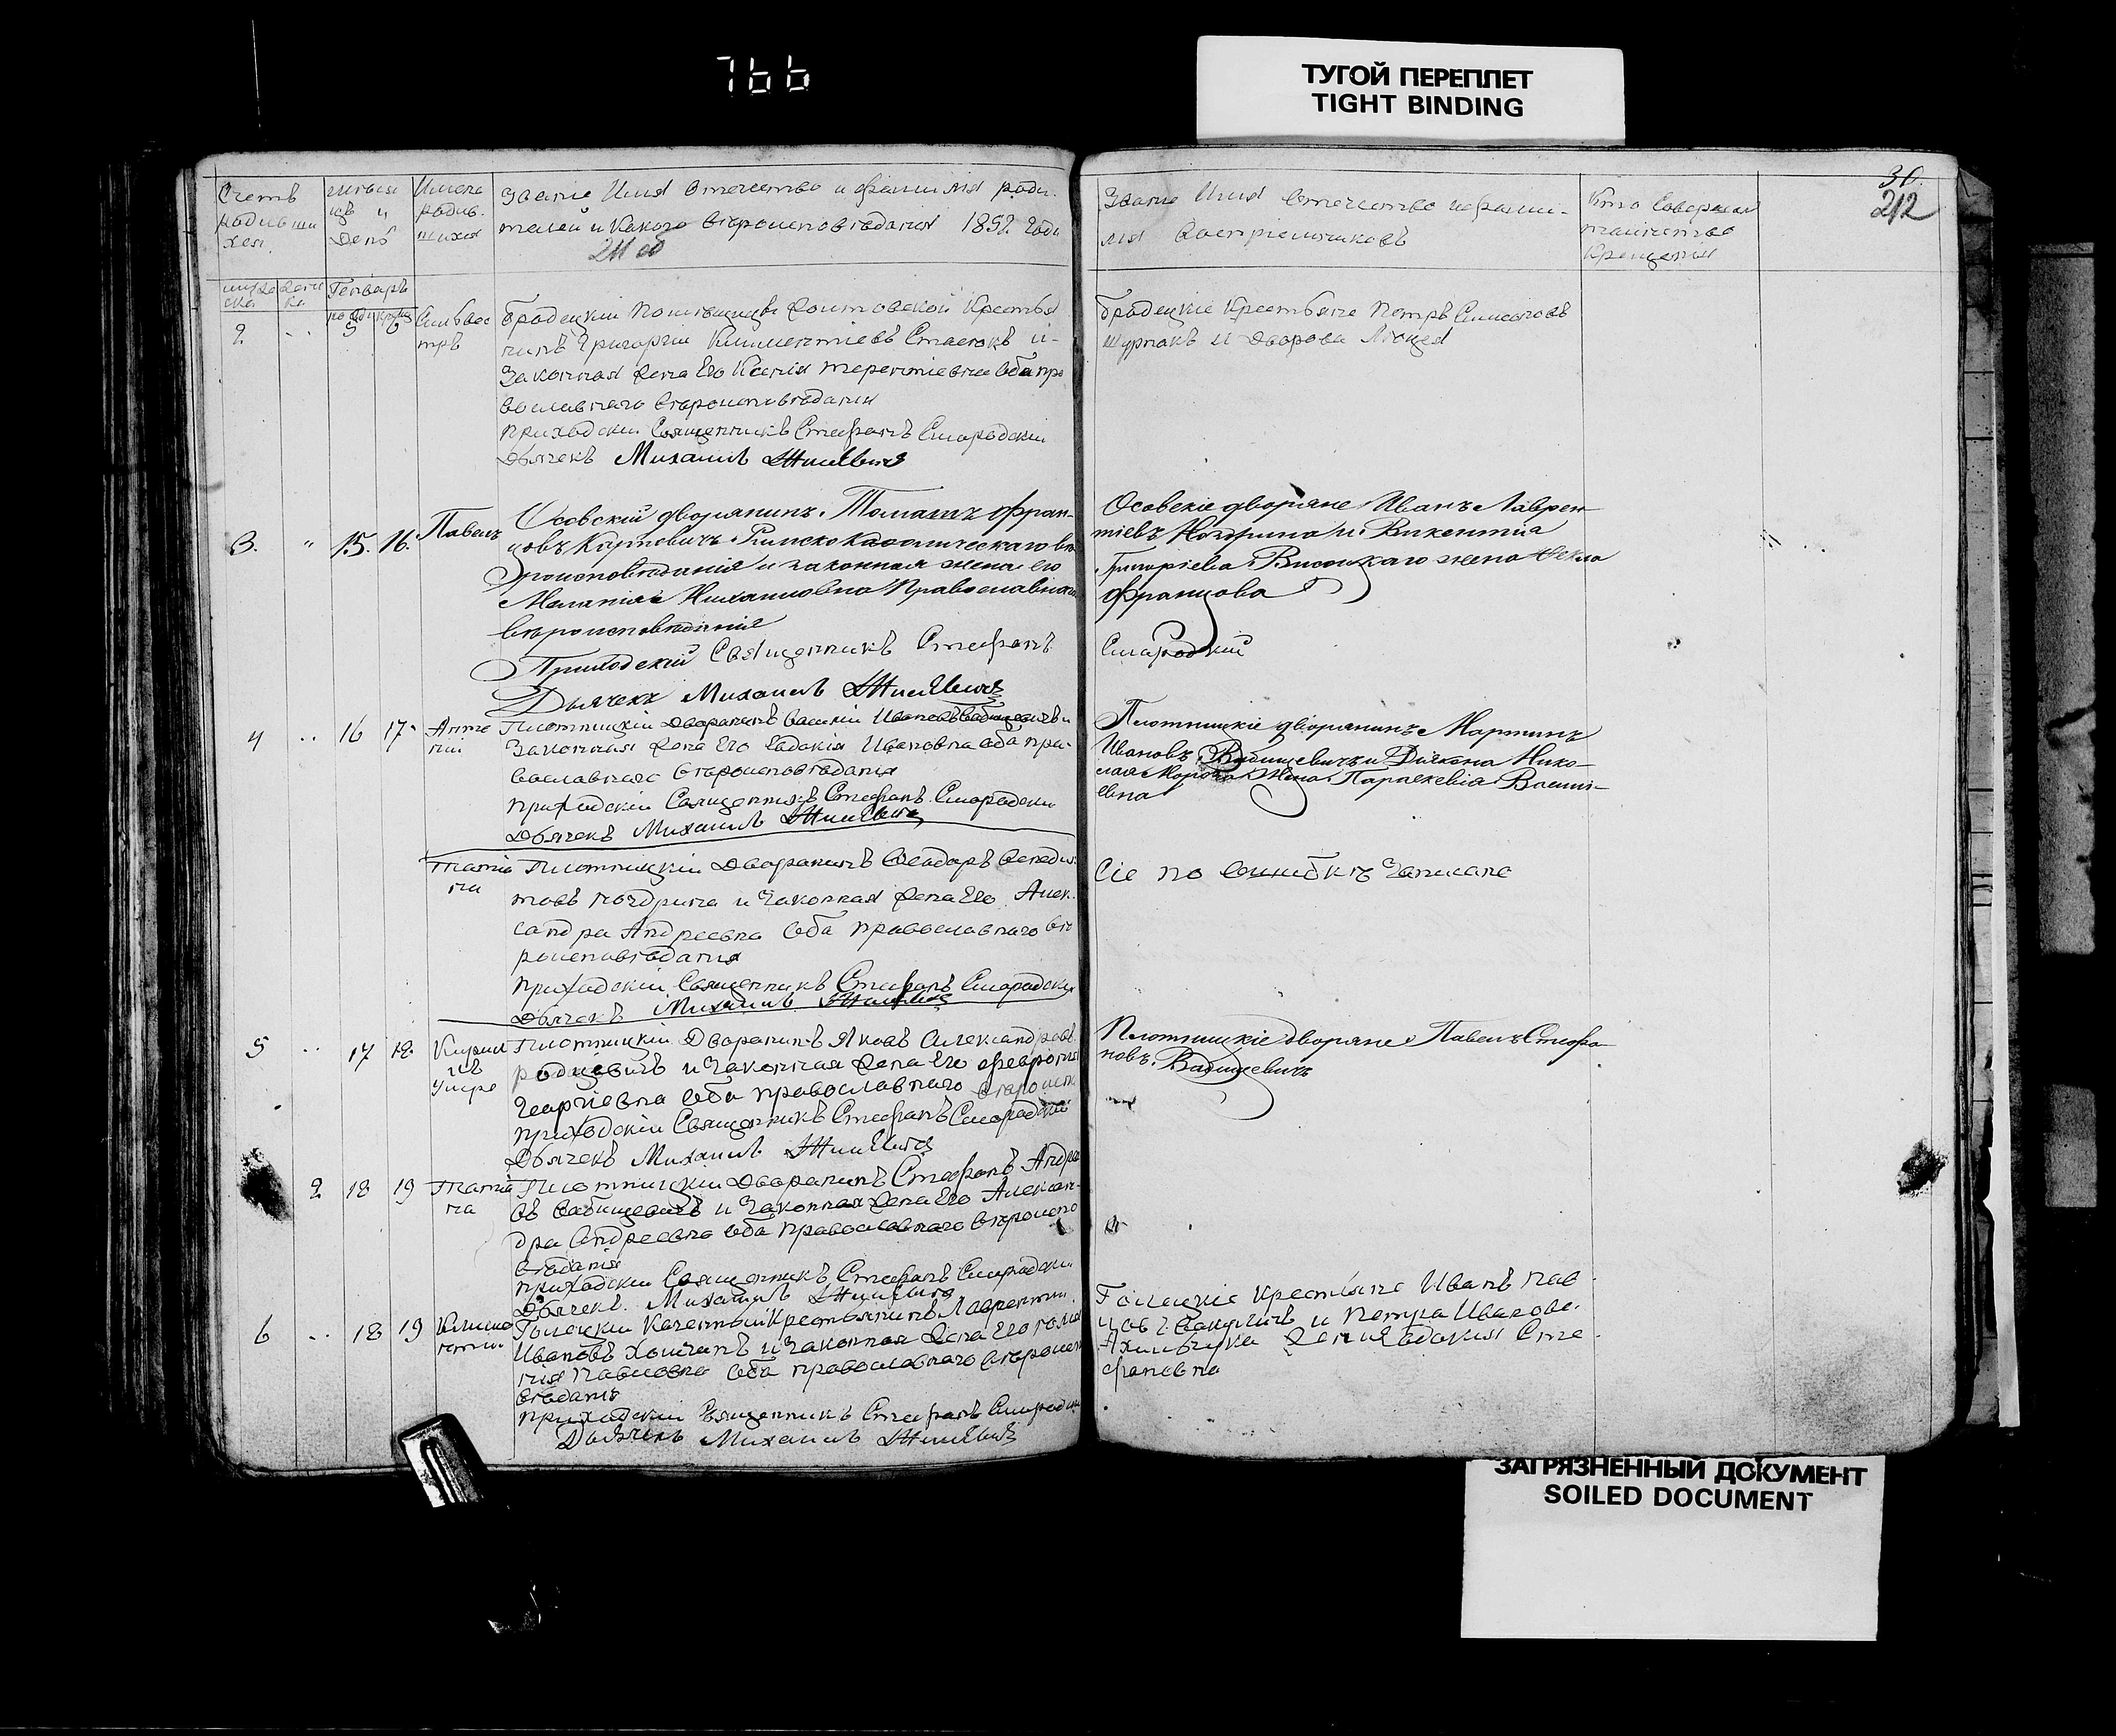 766
ТУГОЙ ПЕРЕПЛЕТ
TIGHT BINDING
30.
212
Счетъ родивши хся
месяцъ и день
Имена родив- шихся
Званіе Имя Отчество и фамилія роди-
телей и Какого вѣроисповѣданія 1852 года
Званіе Имя Отчество и фами-
лія Воспріемниковъ
Кто Совершал
таинство
Крещенія
Генваръ
2 .. 5 6 Сильвес
тръ
Бродецкій Помѣщицы Крестья
нинъ Григорій Климентіевъ Стасюкъ и
Законная Жена Его Ксенія Терентіевна Оба пра
вославнаго вѣроисповѣданія
Приходскій Священникъ Стефанъ Смародскій
Дьячекъ Михаилъ
Бродецкіе Крестьяне Петръ Симеоновъ
и
3. " 15. 16. Павелъ
Осовскій дворянинъ Томашъ Фран-
цовъ Карпевичъ Римско Каѳолическаго вѣ
роисповѣданія и законная жена его
Меланія Михайловна Православнаго
вѣроисповѣданія
Приходскій Священникъ Стефанъ
Дьячекъ Михаилъ
Осовскіе дворяне Иванъ Лаврен-
тіевъ Ноздрина и Викентія
Григоріева Высоцкаго жена Текла
Францова
Смародскій
4 .. 16 17. Анто
ній
Плотницкій Дворанинъ Василій Ивановъ Вабищевичъ и
Законная Жена Его Евдокія Ивановна оба пра-
вославнаго вѣроисповѣданія
Приходскій Священникъ Стефанъ Смародскій
Дьячекъ Михаилъ
Плотницкіе дворянинъ Мартинъ
Ивановъ Вабищевичъ и Дьякона Нико-
лая Мороза Жена Параскевія Васили-
евна
Татіа
на
Плотницкій Дворанинъ Ѳеодоръ Венеди
товъ Ноздрина и Законная Жена Его Алек-
сандра Андреевна Оба православнаго вѣ
роисповѣданія
Приходскій Священникъ Стефанъ Смародскій
Дьячекъ Михаилъ
Сіе по ошибкѣ записано
5 .. 17 18. Кирил
лъ
Плотницкій Дворанинъ Яковъ Александровъ
Родцевичъ и Законная Жена Его Февронія
Георгіевна оба православнаго вѣроисп
Приходскій Священникъ Стефанъ Смародскій
Дьячекъ Михаилъ
Плотницкіе дворяне Павелъ Стефа-
новъ Вабищевичъ
2 18 19 Татіа
на
Плотницкій Дворанинъ Стефанъ Андре
въ Вабищевичъ и Законная Жена Его Алексан-
дра Андреевна оба православнаго вѣроиспо
вѣданія
Приходскій Священникъ Стефанъ Смародскій
Дьячекъ Михаилъ
6 .. 18 19 Климе
нтій
Голецкій Казенный Крестьянинъ Лаврентій
Ивановъ и Законная Жена Его
Павловна Оба православнаго вѣроисп
вѣданія
Приходскій Священникъ Стефанъ Смародскій
Дьячекъ Михаилъ
Голецкіе Крестьяне Иванъ Пав
ловъ и Петра Иванова
Жена Евдокія Сте
фановна
ЗАГРЯЗНЕННЫЙ ДОКУМЕНТ
SOILED DOCUMENT